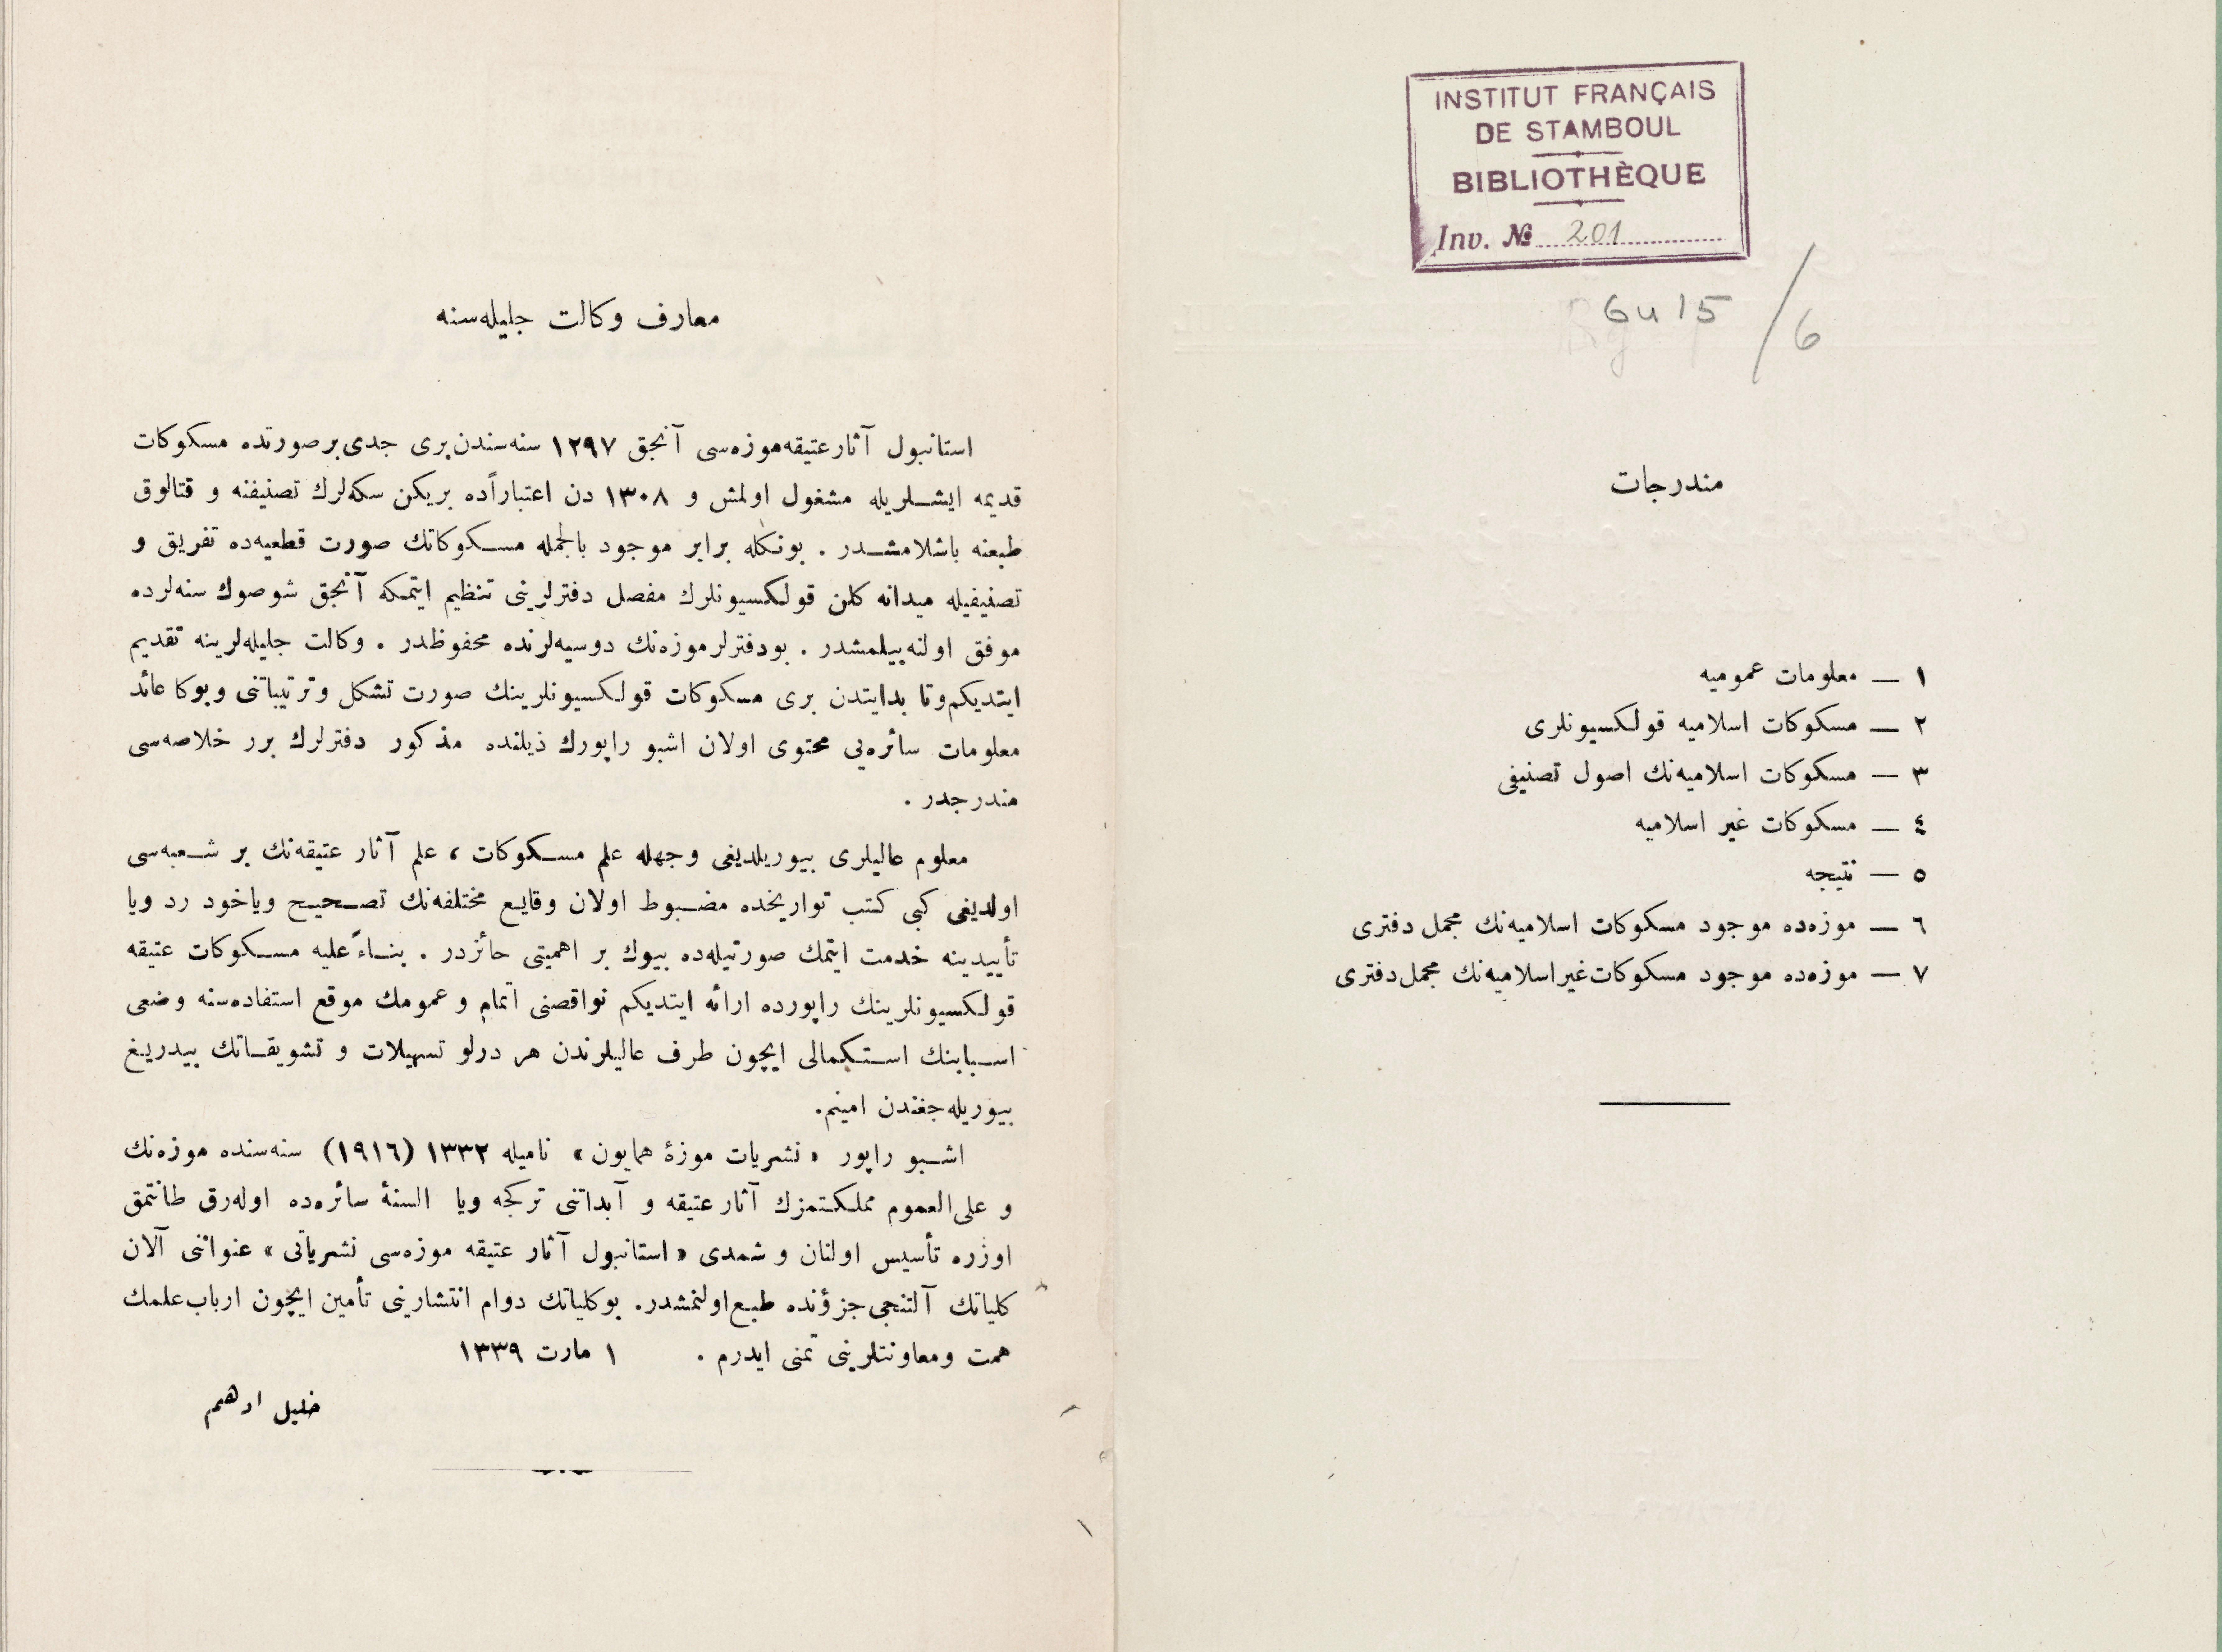 INSTITUT FRANÇAIS
DE STAMBOUL
BIBLIOTHÈQUE
Inv. № 201
Gu 15 / 6
مندرجات
١ — معلومات عموميه
٢ — مسكوكات اسلاميه قولكسيونلرى
٣ — مسكوكات اسلاميه‌نك اصول تصنيفى
٤ — مسكوكات غير اسلاميه
٥ — نتيجه
٦ — موزه‌ده موجود مسكوكات اسلاميه‌نك مجمل دفترى
٧ — موزه‌ده موجود مسكوكات غير اسلاميه‌نك مجمل دفترى
معارف وكالت جليله‌سنه
استانبول آثار عتيقه موزه‌سى آنجق ١٢٩٧ سنه‌سندن برى جدى بر صورتده مسكوكات
قديمه ايشلريله مشغول اولمش و ١٣٠٨ دن اعتباراً ده بريكن سكه‌لرك تصنيفنه و قتالوق
طبعنه باشلامشدر . بونكله برابر موجود بالجمله مسكوكاتك صورت قطعيه‌ده تفريق و
تصنيفيله ميدانه كلن قولكسيونلرك مفصل دفترلرينى تنظيم ايتمكه آنجق شو صوك سنه‌لرده
موفق اولنه‌بيلمشدر . بودفترلر موزه‌نك دوسيه‌لرنده محفوظدر . وكالت جليله‌لرينه تقديم
ايتديكم وتا بدايتدن برى مسكوكات قولكسيونلرينك صورت تشكل وترتيباتنى وبوكا عائد
معلومات سائره‌يى محتوى اولان اشبو راپورك ذيلنده مذكور دفترلرك برر خلاصه‌سى
مندرجدر .
معلوم عاليلرى بيوريلديغى وجهله علم مسكوكات ، علم آثار عتيقه‌نك بر شعبه‌سى
اولديغى كبى كتب تواريخده مضبوط اولان وقايع مختلفه‌نك تصحيح وياخود رد ويا
تأييدينه خدمت ايتمك صورتيله‌ده بيوك بر اهميتى حائزدر . بناءً عليه مسكوكات عتيقه
قولكسيونلرينك راپورده ارائه ايتديكم نواقصنى اتمام و عمومك موقع استفاده‌سنه وضعى
اسبابنك استكمالى ايچون طرف عاليلرندن هر درلو تسهيلات و تشويقاتك بيدريغ
بيوريله‌جغندن امينم.
اشبو راپور « نشريات موزۀ همايون » ناميله ١٣٣٢ (١٩١٦) سنه‌سنده موزه‌نك
و على‌العموم مملكتمزك آثار عتيقه و آبداتنى تركجه ويا السنۀ سائره‌ده اوله‌رق طانتمق
اوزره تأسيس اولنان و شمدى « استانبول آثار عتيقه موزه‌سى نشرياتى » عنواننى آلان
كلياتك آلتنجى جزؤنده طبع اولنمشدر. بوكلياتك دوام انتشارينى تأمين ايچون ارباب علمك
همت ومعاونتلرينى تمنى ايدرم . ١ مارت ١٣٣٩
خليل ادهم